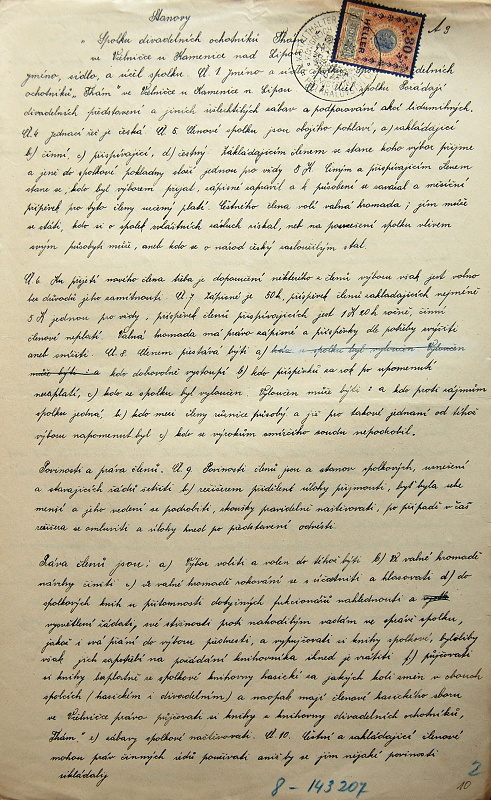 Stanovy
"Spolku divadelních ochotníků Thám"
ve Velničce u Kamenice nad Lipou
jméno, sídlo, a účel spolku. Č. 1 jméno a sídlo spolku
ochotníků "Thám" ve Velničce u Kamenice n Lipou Účel spolku Pořádají
divadelních představení a jiných ušlechtilých zábav a podporování akcí lidumilných.
Č. 4 jednací řeč je česká Č. 5 Členové spolku jsou obojího pohlaví, a) zakládající
b) činní, c) přispívající, d) čestný. Zakládajícím členem se stane koho výbor přijme
a jenž do spolkové pokladny složí jednou pro vždy 5 K. Činným a přispívajícím členem
stane se, kdo byl výborem přijat, zápisné zapravil a k působení se zavázal a měsíční
příspěvek pro tyto členy určený platí. Čestného člena volí valná hromada; jím může
se státi, kdo si o spolek zvláštních zásluh získal, neb na povznesení spolku vlivem
svým působiti může, aneb kdo se o národ český zasloužilým stal.
Č. 6. Ku přijetí nového člena třeba je doporučení některého z členů výboru však jest volno
bez důvodů jeho zamítnouti. Č. 7. Zápisné je 50 h, příspěvek členů zakladajících nejméně
5 K jednou pro vždy, příspěvek členů přispívajících jest 1 K 20 h ročně, činní
členové neplatí. Valná hromada má právo zápisné a příspěvky dle potřeby zvýšiti
aneb snížiti. Č. 8. Členem přestává býti a) kdo z spolku byl vyloučen Vyloučen
může býti: a kdo dobrovolně vystoupí b) kdo příspěvků za rok po upomenutí
nezaplatí, c) kdo ze spolku byl vyloučen. Vyloučen může býti: a kdo proti zájmům
spolku jedná, b) kdo mezi členy různice působý a již pro takové jednání od téhož
výboru napomenut byl c) kdo se výrokům smírčího soudu nepodrobil.
Povinosti a práva členů. Č. 9. Povinosti členů jsou a stanov spolkových, usnešení
a stávajících řádů šetřiti b) režisérem přidělené úlohy přijmouti, byť byla sebe
menší a jeho vedení se podrobiti, zkoušky pravidelně navštěvovati, po případě v čas
režiséra se omluviti a úlohy hned po představení odvésti.
Práva členů jsou: a) Výbor voliti a volen do téhož býti b) Ve valné hromadě
návrhy činiti c) ve valné hromadě rokování se zúčastniti a hlasovati d) do
spolkových knih u přítomnosti dotyčných funkcionářů nahlédnouti a
vysvětlení žádati, své stížnosti proti nahodilým vadám ve správě spolku,
jakož i svá přání do výboru přednésti, a vypůjčovati si knihy spolkové, byloliby
však jich zapotřebí na požádání knihovníka ihned je vrátiti f.) půjčovati
si knihy bezplatně ze spolkové knihovny hasické za jakých koli změn v obouch
spolcích / hasickém i divadelním / a naopak mají členové hasického sboru
ve Velničce právo půjčovati si knihy z knihovny divadelních ochotníků,
"Thám" e) zábavy spolkové navštěvovati. Č. 10. Čestní a zakládající členové
mohou práv činných údů používati aniž by se jim nějaké povinosti
ukládaly
8 - 143207
2
10
HELLER